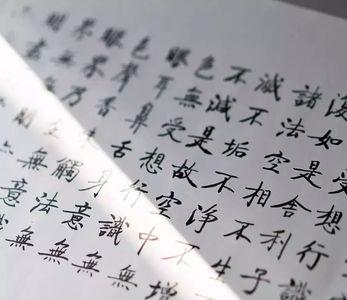 受想行
復如是舍利子
諸法空相不生
滅不垢不淨不增
不減是故空中無
色無受想行識無
眼耳鼻舌身意無
色聲香味觸法無
眼界乃至無意
界無